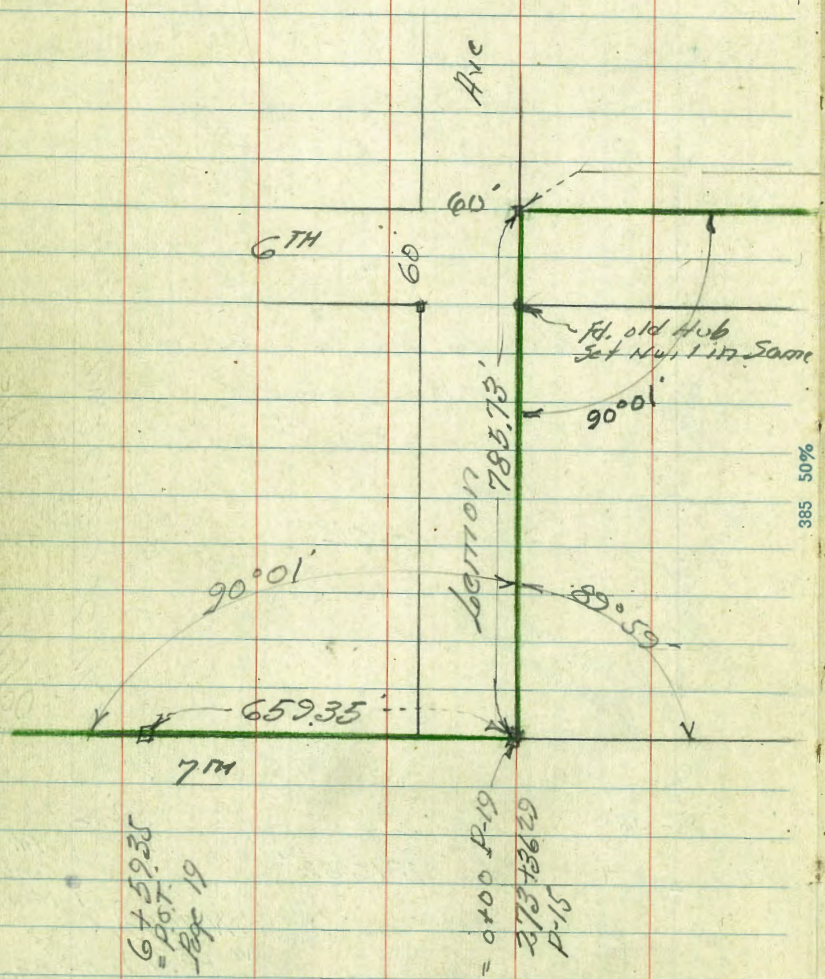 Ave
60'
6TH
60
Fd. old Hub
Set Nail in Same
90°01'
785.73'
Lemon
385 50%
90°01'
89°59'
659.35'
7TH
6+59.35
= P.O.T.
Page 19
= 0+00 P-19
273+36.29
P-15